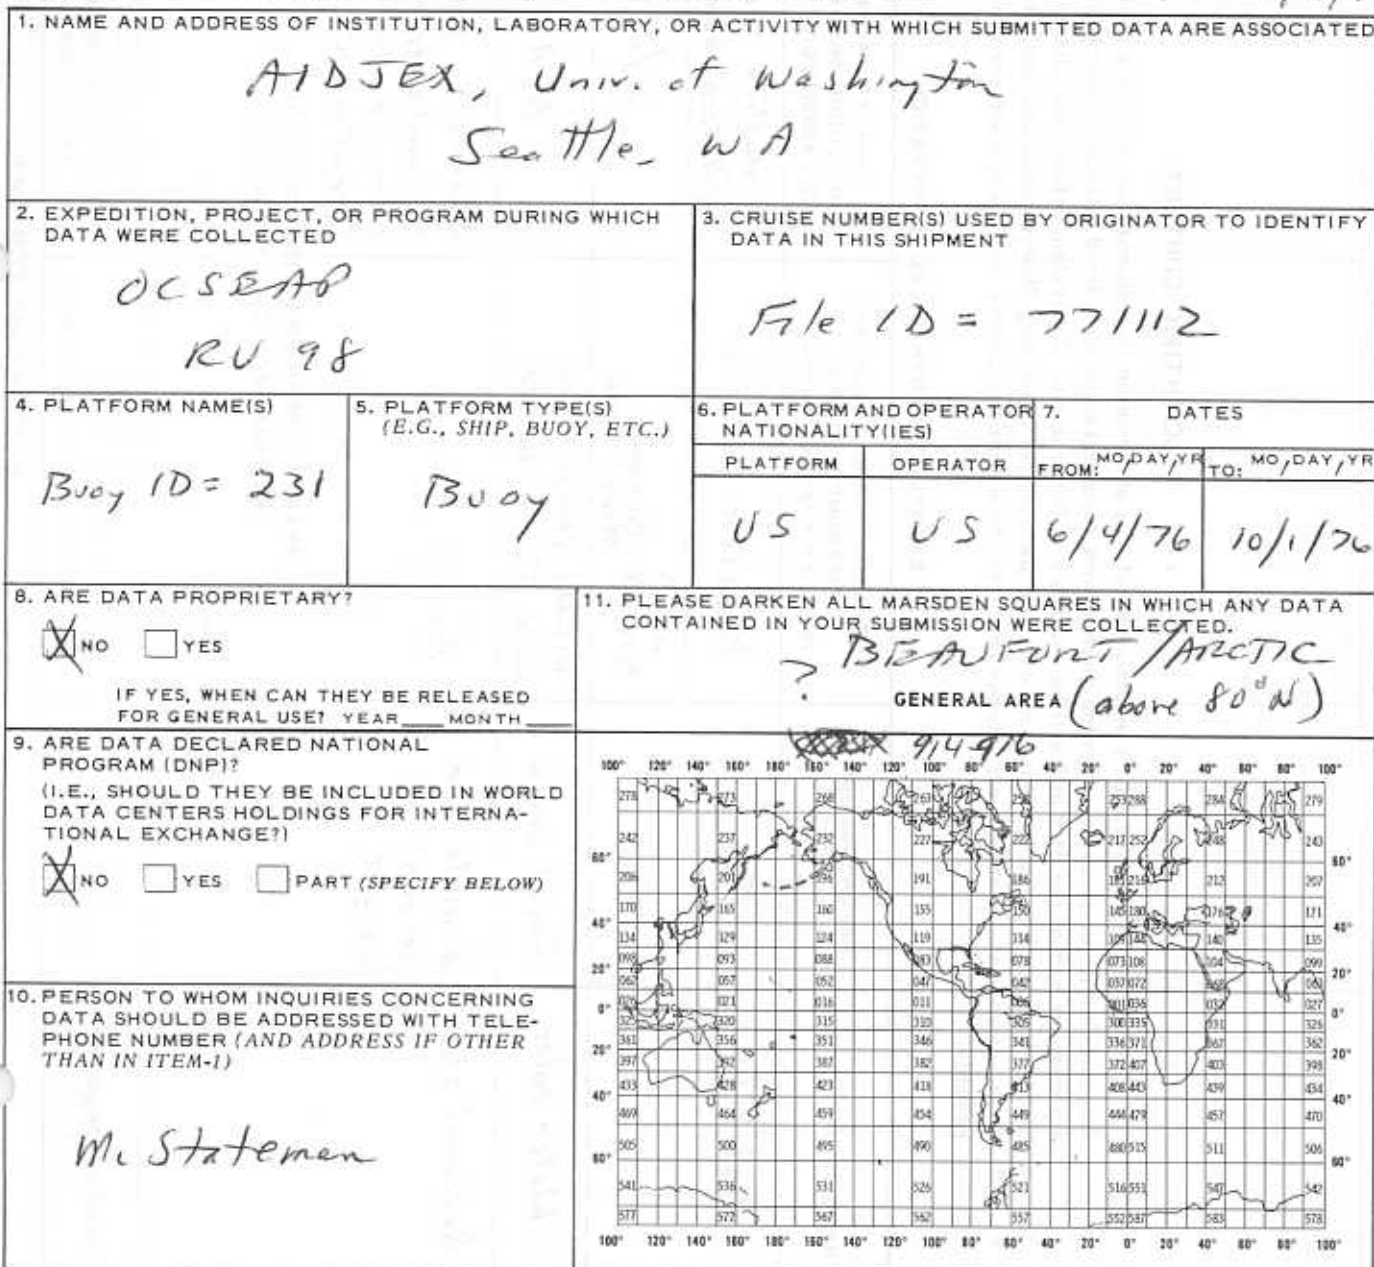 1. NAME AND ADDRESS OF INSTITUTION, LABORATORY, OR ACTIVITY WITH WHICH SUBMITTED DATA ARE ASSOCIATED
AIDJEX, Univ. of Washington
Seattle, WA
2. EXPEDITION, PROJECT, OR PROGRAM DURING WHICH
DATA WERE COLLECTED
OCSEAP
RU 98
3. CRUISE NUMBER(S) USED BY ORIGINATOR TO IDENTIFY
DATA IN THIS SHIPMENT
File ID = 771112
4. PLATFORM NAME(S)
Buoy ID = 231
5. PLATFORM TYPE(S)
(E.G., SHIP, BUOY, ETC.)
Buoy
6. PLATFORM AND OPERATOR
NATIONALITY(IES)
PLATFORM OPERATOR
US US
7. DATES
FROM: MO,DAY,YR TO: MO,DAY,YR
6/4/76 10/1/76
8. ARE DATA PROPRIETARY?
NO YES
IF YES, WHEN CAN THEY BE RELEASED
FOR GENERAL USE? YEAR MONTH
9. ARE DATA DECLARED NATIONAL
PROGRAM (DNP)?
(I.E., SHOULD THEY BE INCLUDED IN WORLD
DATA CENTERS HOLDINGS FOR INTERNA-
TIONAL EXCHANGE?)
NO YES PART (SPECIFY BELOW)
10. PERSON TO WHOM INQUIRIES CONCERNING
DATA SHOULD BE ADDRESSED WITH TELE-
PHONE NUMBER (AND ADDRESS IF OTHER
THAN IN ITEM-1)
M. Stateman
11. PLEASE DARKEN ALL MARSDEN SQUARES IN WHICH ANY DATA
CONTAINED IN YOUR SUBMISSION WERE COLLECTED.
? BEAUFORT/ARCTIC
GENERAL AREA (above 80° N)
914-916
100° 120° 140° 160° 180° 160° 140° 120° 100° 80° 60° 40° 20° 0° 20° 40° 60° 80° 100°
278 273 268 263 258 253 288 284 279
242 237 232 227 222 217 252 248 243
60° 60°
206 201 196 191 186 181 216 212 207
170 165 160 155 150 145 180 176 171
40° 40°
134 129 124 119 114 109 144 140 135
098 093 088 083 078 073 108 104 099
20° 20°
062 057 052 047 042 037 072 068 063
026 021 016 011 006 001 036 032 027
0° 0°
325 320 315 310 305 300 335 331 326
361 356 351 346 341 336 371 367 362
20° 20°
397 392 387 382 377 372 407 403 398
433 428 423 418 413 408 443 439 434
40° 40°
469 464 459 454 449 444 479 457 470
505 500 495 490 485 480 515 511 506
60° 60°
541 536 531 526 521 516 551 547 542
577 572 567 562 557 552 587 583 578
100° 120° 140° 160° 180° 160° 140° 120° 100° 80° 60° 40° 20° 0° 20° 40° 60° 80° 100°